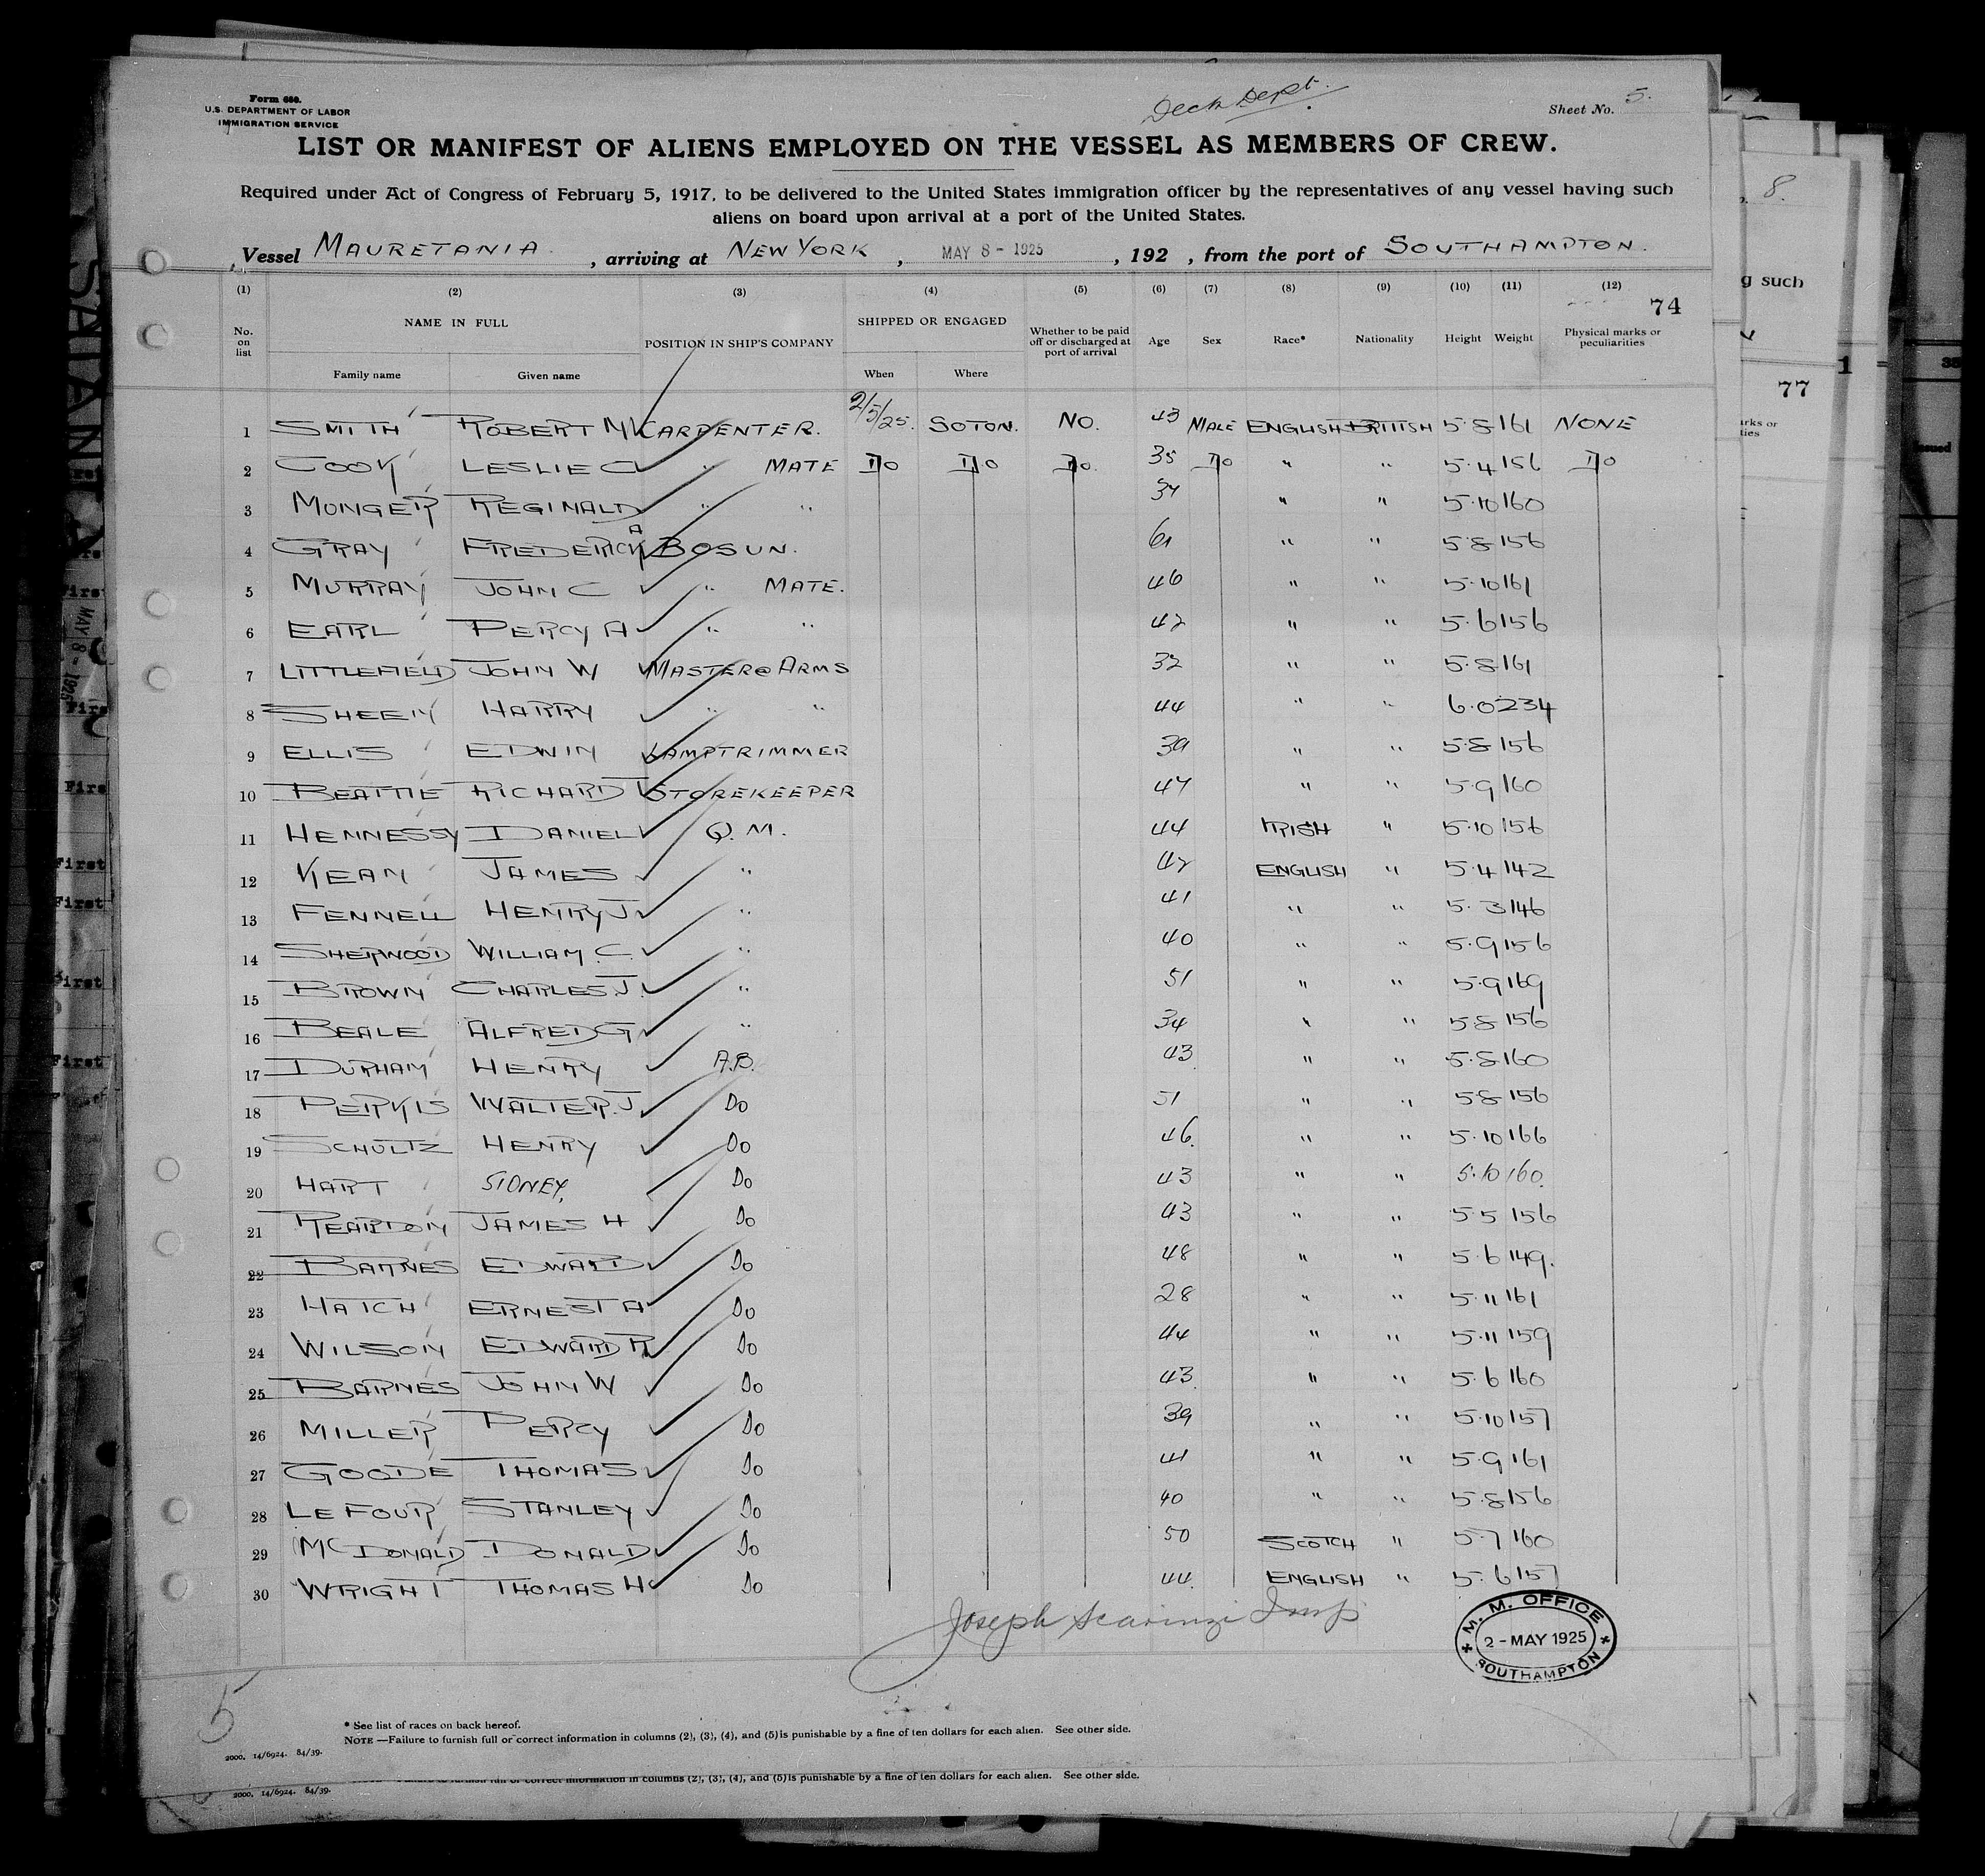 Form 680.
U.S. DEPARTMENT OF LABOR
IMMIGRATION SERVICE
Deck Dept.
Sheet No. 5.
LIST OR MANIFEST OF ALIENS EMPLOYED ON THE VESSEL AS MEMBERS OF CREW.
Required under Act of Congress of February 5, 1917, to be delivered to the United States immigration officer by the representatives of any vessel having such
aliens on board upon arrival at a port of the United States.
Vessel MAURETANIA, arriving at NEW YORK, MAY 8 - 1925, 192 , from the port of SOUTHAMPTON.
(1) (2) (3) (4) (5) (6) (7) (8) (9) (10) (11) (12)
74
No. on list NAME IN FULL POSITION IN SHIP'S COMPANY SHIPPED OR ENGAGED Whether to be paid off or discharged at port of arrival Age Sex Race* Nationality Height Weight Physical marks or peculiarities
Family name Given name When Where
1 SMITH ROBERT M CARPENTER. 2/5/25. SOTON. NO. 43 MALE ENGLISH BRITISH 5·8 161 NONE
2 COOK LESLIE C " MATE DO DO DO. 35 DO " " 5·4 156 DO
3 MONGER REGINALD " " 37 " " 5·10 160
4 GRAY FREDERICK A BOSUN. 61 " " 5·8 156
5 MURRAY JOHN C " MATE. 46 " " 5·10 161
6 EARL PERCY A " " 42 " " 5·6 156
7 LITTLEFIELD JOHN W MASTER@ARMS 32 " " 5·8 161
8 SHEEN HARRY " " 44 " " 6·0 234
9 ELLIS EDWIN LAMPTRIMMER 39 " " 5·8 156
10 BEATTIE RICHARD T STOREKEEPER 47 " " 5·9 160
11 HENNESSY DANIEL Q.M. 44 IRISH " 5·10 156
12 KEAN JAMES " 42 ENGLISH " 5·4 142
13 FENNELL HENRY J " 41 " " 5·3 146
14 SHERWOOD WILLIAM.C. " 40 " " 5·9 156
15 BROWN CHARLES.J. " 51 " " 5·9 169
16 BEALE ALFRED G " 34 " " 5·8 156
17 DURHAM HENRY A.B. 43 " " 5·8 160
18 PERKIS WALTER.J. Do 51 " " 5·8 156
19 SCHULTZ HENRY Do 46. " " 5·10 166
20 HART SIDNEY, Do 43 " " 5·10 160.
21 REARDON JAMES H Do 43 " " 5·5 156
22 BARNES EDWARD Do 48 " " 5·6 149.
23 HATCH ERNEST A Do 28 " " 5·11 161
24 WILSON EDWARD R Do 44 " " 5·11 159
25 BARNES JOHN W Do 43 " " 5·6 160
26 MILLER PERCY Do 39 " " 5·10 157
27 GOODE THOMAS Do 41 " " 5·9 161
28 LE FOUR STANLEY Do 40 " " 5·8 156
29 MCDONALD DONALD Do 50 SCOTCH " 5·7 160
30 WRIGHT THOMAS H Do 44. ENGLISH " 5·6 157
Joseph Scarinzi Insp
M. M. OFFICE
2 - MAY 1925
SOUTHAMPTON
5
* See list of races on back hereof.
NOTE —Failure to furnish full or correct information in columns (2), (3), (4), and (5) is punishable by a fine of ten dollars for each alien. See other side.
2000. 14/6924. 84/39.
correct information in columns (2), (3), (4), and (5) is punishable by a fine of ten dollars for each alien. See other side.
2000. 14/6924. 84/39.
8.
g such
77
1
First
First
First
First
First
First
MAY 8 - 1925